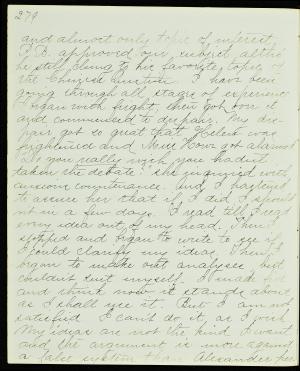 279
and almost only topic of interest.
J. B. approved our subject altho'
he still clung to his favorite topic of
the Chinese Question. I have been
going through all stages of experience
began with fright, then got over it
and commenced to despair. My des-
pair got so great that Helen was
frightened and Miss Howe got alarmed
"Do you really wish you hadn't
taken the debate" she inquired with
anxious countenance. And I hastened
to assure her that if I did, I should
not in a few days. I read till I read
every idea out of my head. Then I
stopped and began to write to see if
I could clarify my ideas. Then I
began to make out analyses, but
couldn't suit myself. I made
and think now it stands about
as I shall use it. But I am not
satisfied. I can't do it, as I wish
My ideas are not the kind I want
and the argument is more against
a false system than Alexander